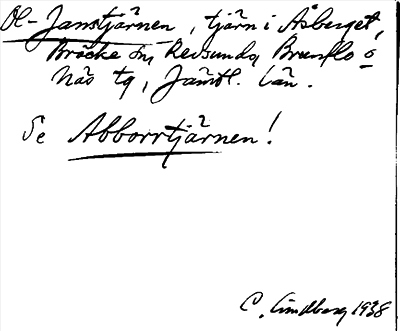 Ol-Janstjärnen, tjärn i Åsberget,
Bräcke sn, Revsunds, Brunflo o
Näs tg, Jämtl. län.
Se Abborrtjärnen!
C. Lindberg 1938